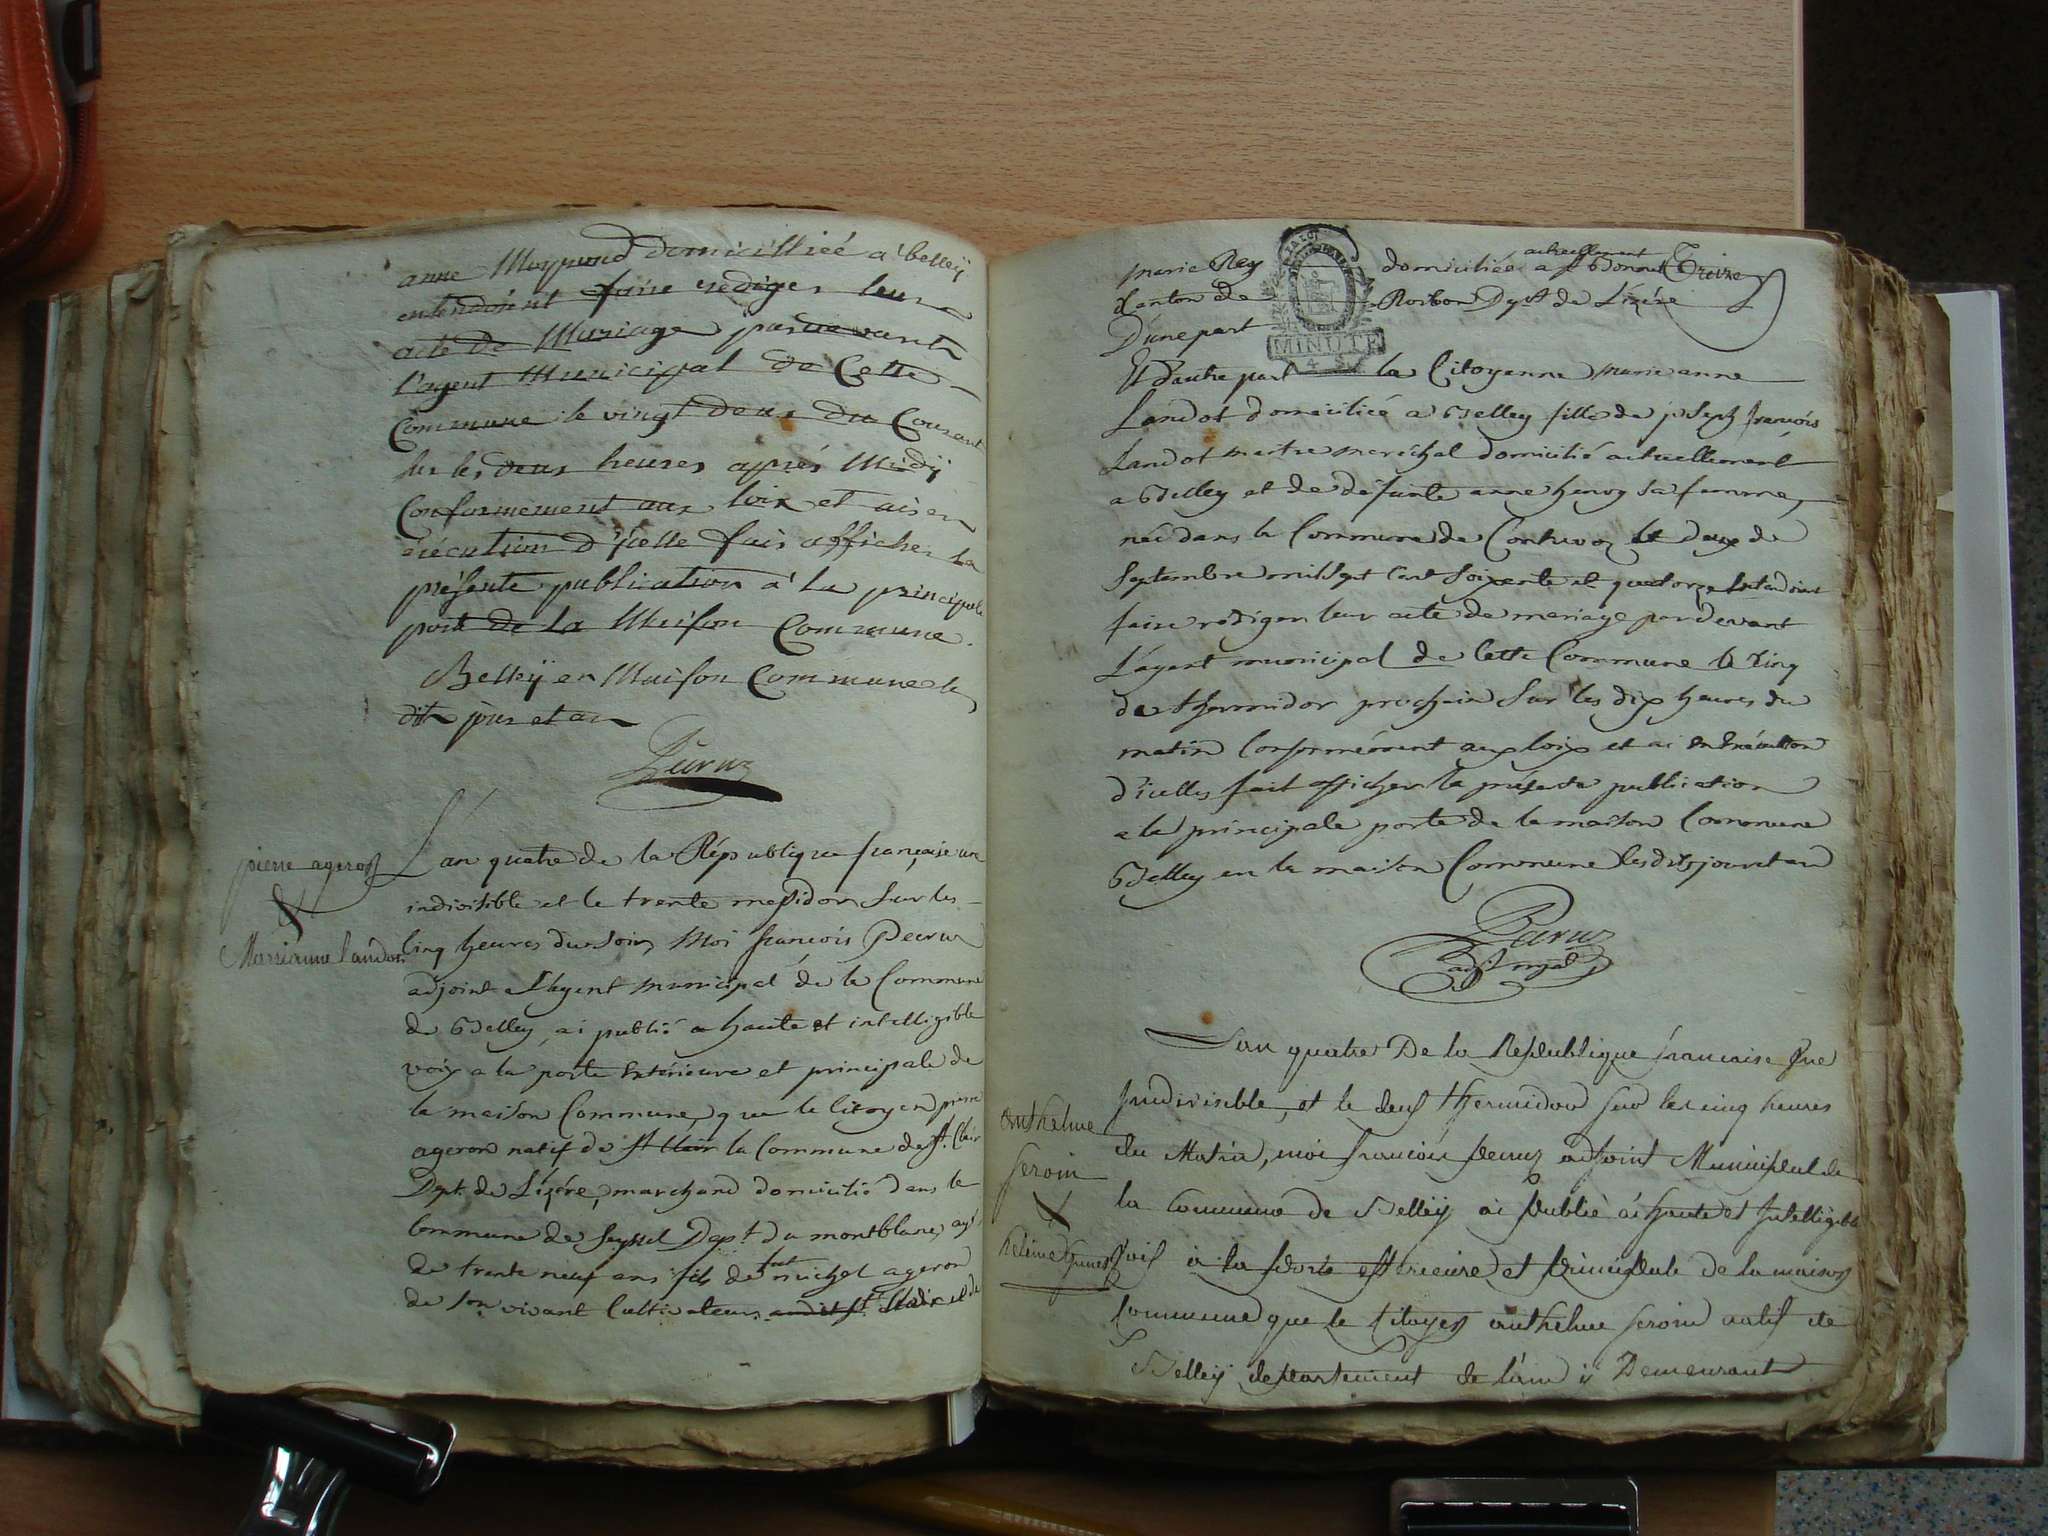 anne domicilliée a belleÿ
entendoient faire rediger leur
acte de Mariage pardevant
l'agent Municipal de Cette
Commune le vingt deux du Courant
sur les deux heures aprés Midÿ
Conformement aux loix et ai en
exécution d'icelle fais afficher la
présente publication à la principale
porte de la Maison Commune.
Belleÿ en Maison Commune le
dit jour et an
Pecruz
pierre ageron
&
Marianne landot
L'an quatre de la République française une
indivisible et le trente mesidor sur les
Cinq heures du soir, Moi françois Pecruz
adjoint a l'agent municipal de la Commune
de Belley, ai publié a haute et intelligible
voix a la porte Extérieure et principale de
la maison Commune, que le Citoyen pierre
ageron natif de St Clair la Commune de St. Clair
Dept. de Lizére, marchand domicilié dans la
Commune de Seyssel Dept. du montblanc, agé
de trente neuf ans fils de fut michel ageron
de son vivant Cultivateur audit St Clair et de
marie Rey domiciliée actuellement a St Bonnet
Canton de Roibon Dept de Lizére
D'une part
Treize
MINUTE
4 S.
Et d'autre part la Citoyenne marie anne
Landot domiciliée a Belley fille de joseph françois
Landot maitre maréchal domicilié actuellement
a Belley et de défunte anne sa femme,
née dans la Commune de le deux de
Septembre mil sept Cent Soixante et quatorze Entendoient
faire rédiger leur acte de mariage pardevant
L'agent municipal de Cette Commune le Cinq
de thermidor prochain Sur les dix heures du
matin Conformément aux loix et ai en Exécution
d'icelles fait afficher la présente publication
a la principale porte de la maison Commune
Belley en la maison Commune lesdits jour et an
Pecruz
adjt mpal
anthelme
feroin
&
L'an quatre De la Republique francaise Une
Indivisible, et le deux thermidor sur les cinq heures
du Matin, moi francois Pecruz adjoint Municipal de
la Commune de Belleÿ ai publié à haute et Intelligible
voix à la porte exterieure et principale de la maison
Commune que le Citoyen anthelme feroin natif de
Belleÿ departement de l'ain ÿ Demeurant